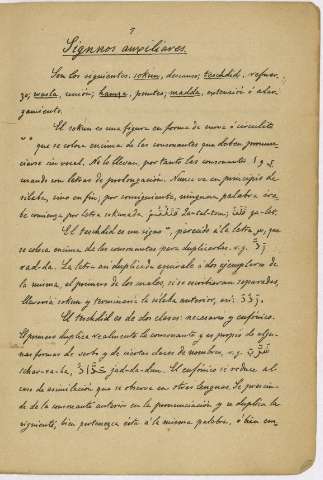 7
Signnos auxiliares.
Son los siguientes: sokun, descanso; teschdid, refuer-
zo; wasla, unión; hamza, puntos; madda, extensión ó alar-
gamiento.
El sokún es una figura en forma de curva ó circulito
que se coloca encima de las consonantes que deben pronun-
ciarse sin vocal. No lo llevan, por tanto las consonantes ا y و
cuando son letras de prolongación. Nunca va en principio de
sílaba, sino en fin; por consiguiente, ninguna palabra ára-
be comienza por letra sokunada.
El teschdid es un signo ّ, parecido á la letra س, que
se coloca encima de las consonantes para duplicarlas. v.g. رَدَّ
rad-da. La letra así duplicada equivale á dos ejemplares de
la misma, el primero de los cuales, si se escribieran separados,
llevaría sokun y terminaria la sílaba anterior, así:
El teschdid es de dos clases: necesario y eufónico.
El primero duplica realmente la consonante y es propio de algu-
nas formas de verbo y de ciertas clases de nombres, v.g.
schar-ra-ba, jad-da-dun. El eufónico se reduce al
caso de asimilación que se observa en otras lenguas. Se prescin-
de de la consonante anterior en la pronunciación, y se duplica la
siguiente; bien pertenezca esta á la misma palabra, ó bien em